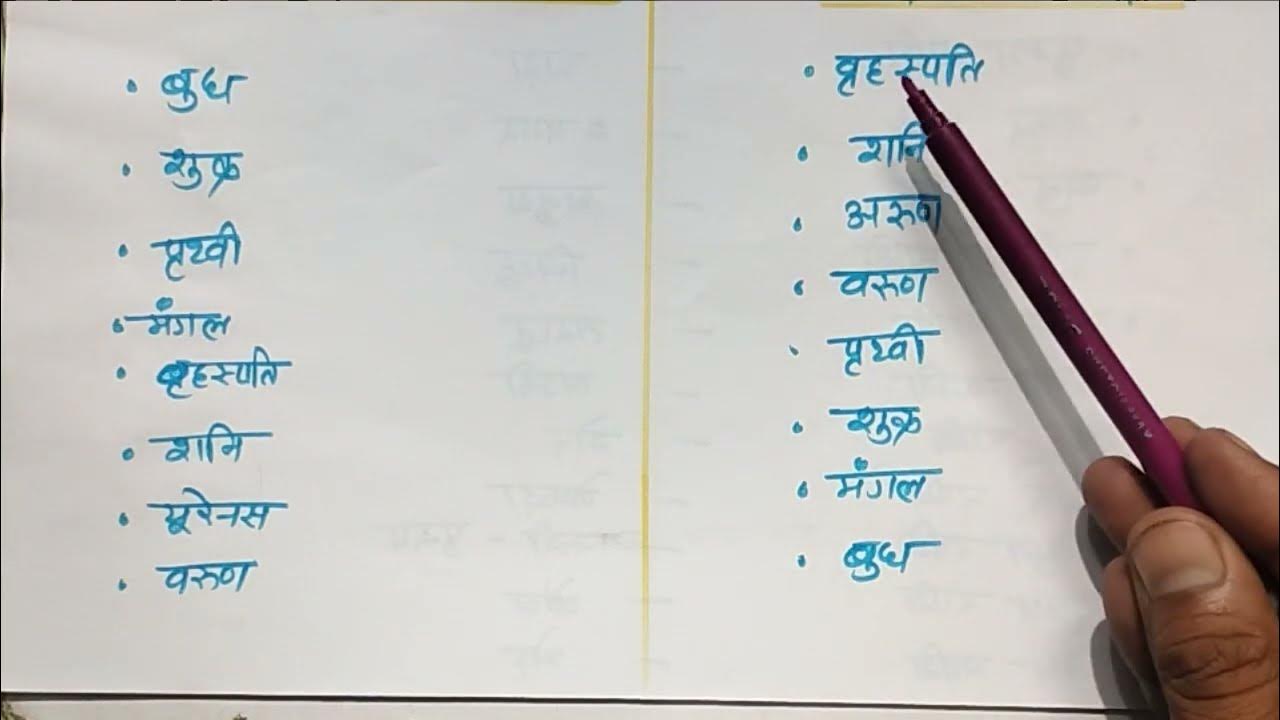 • बुध
• शुक्र
• पृथ्वी
• मंगल
• बृहस्पति
• शनि
• यूरेनस
• वरुण
• बृहस्पति
• शनि
• अरुण
• वरुण
• पृथ्वी
• शुक्र
• मंगल
• बुध